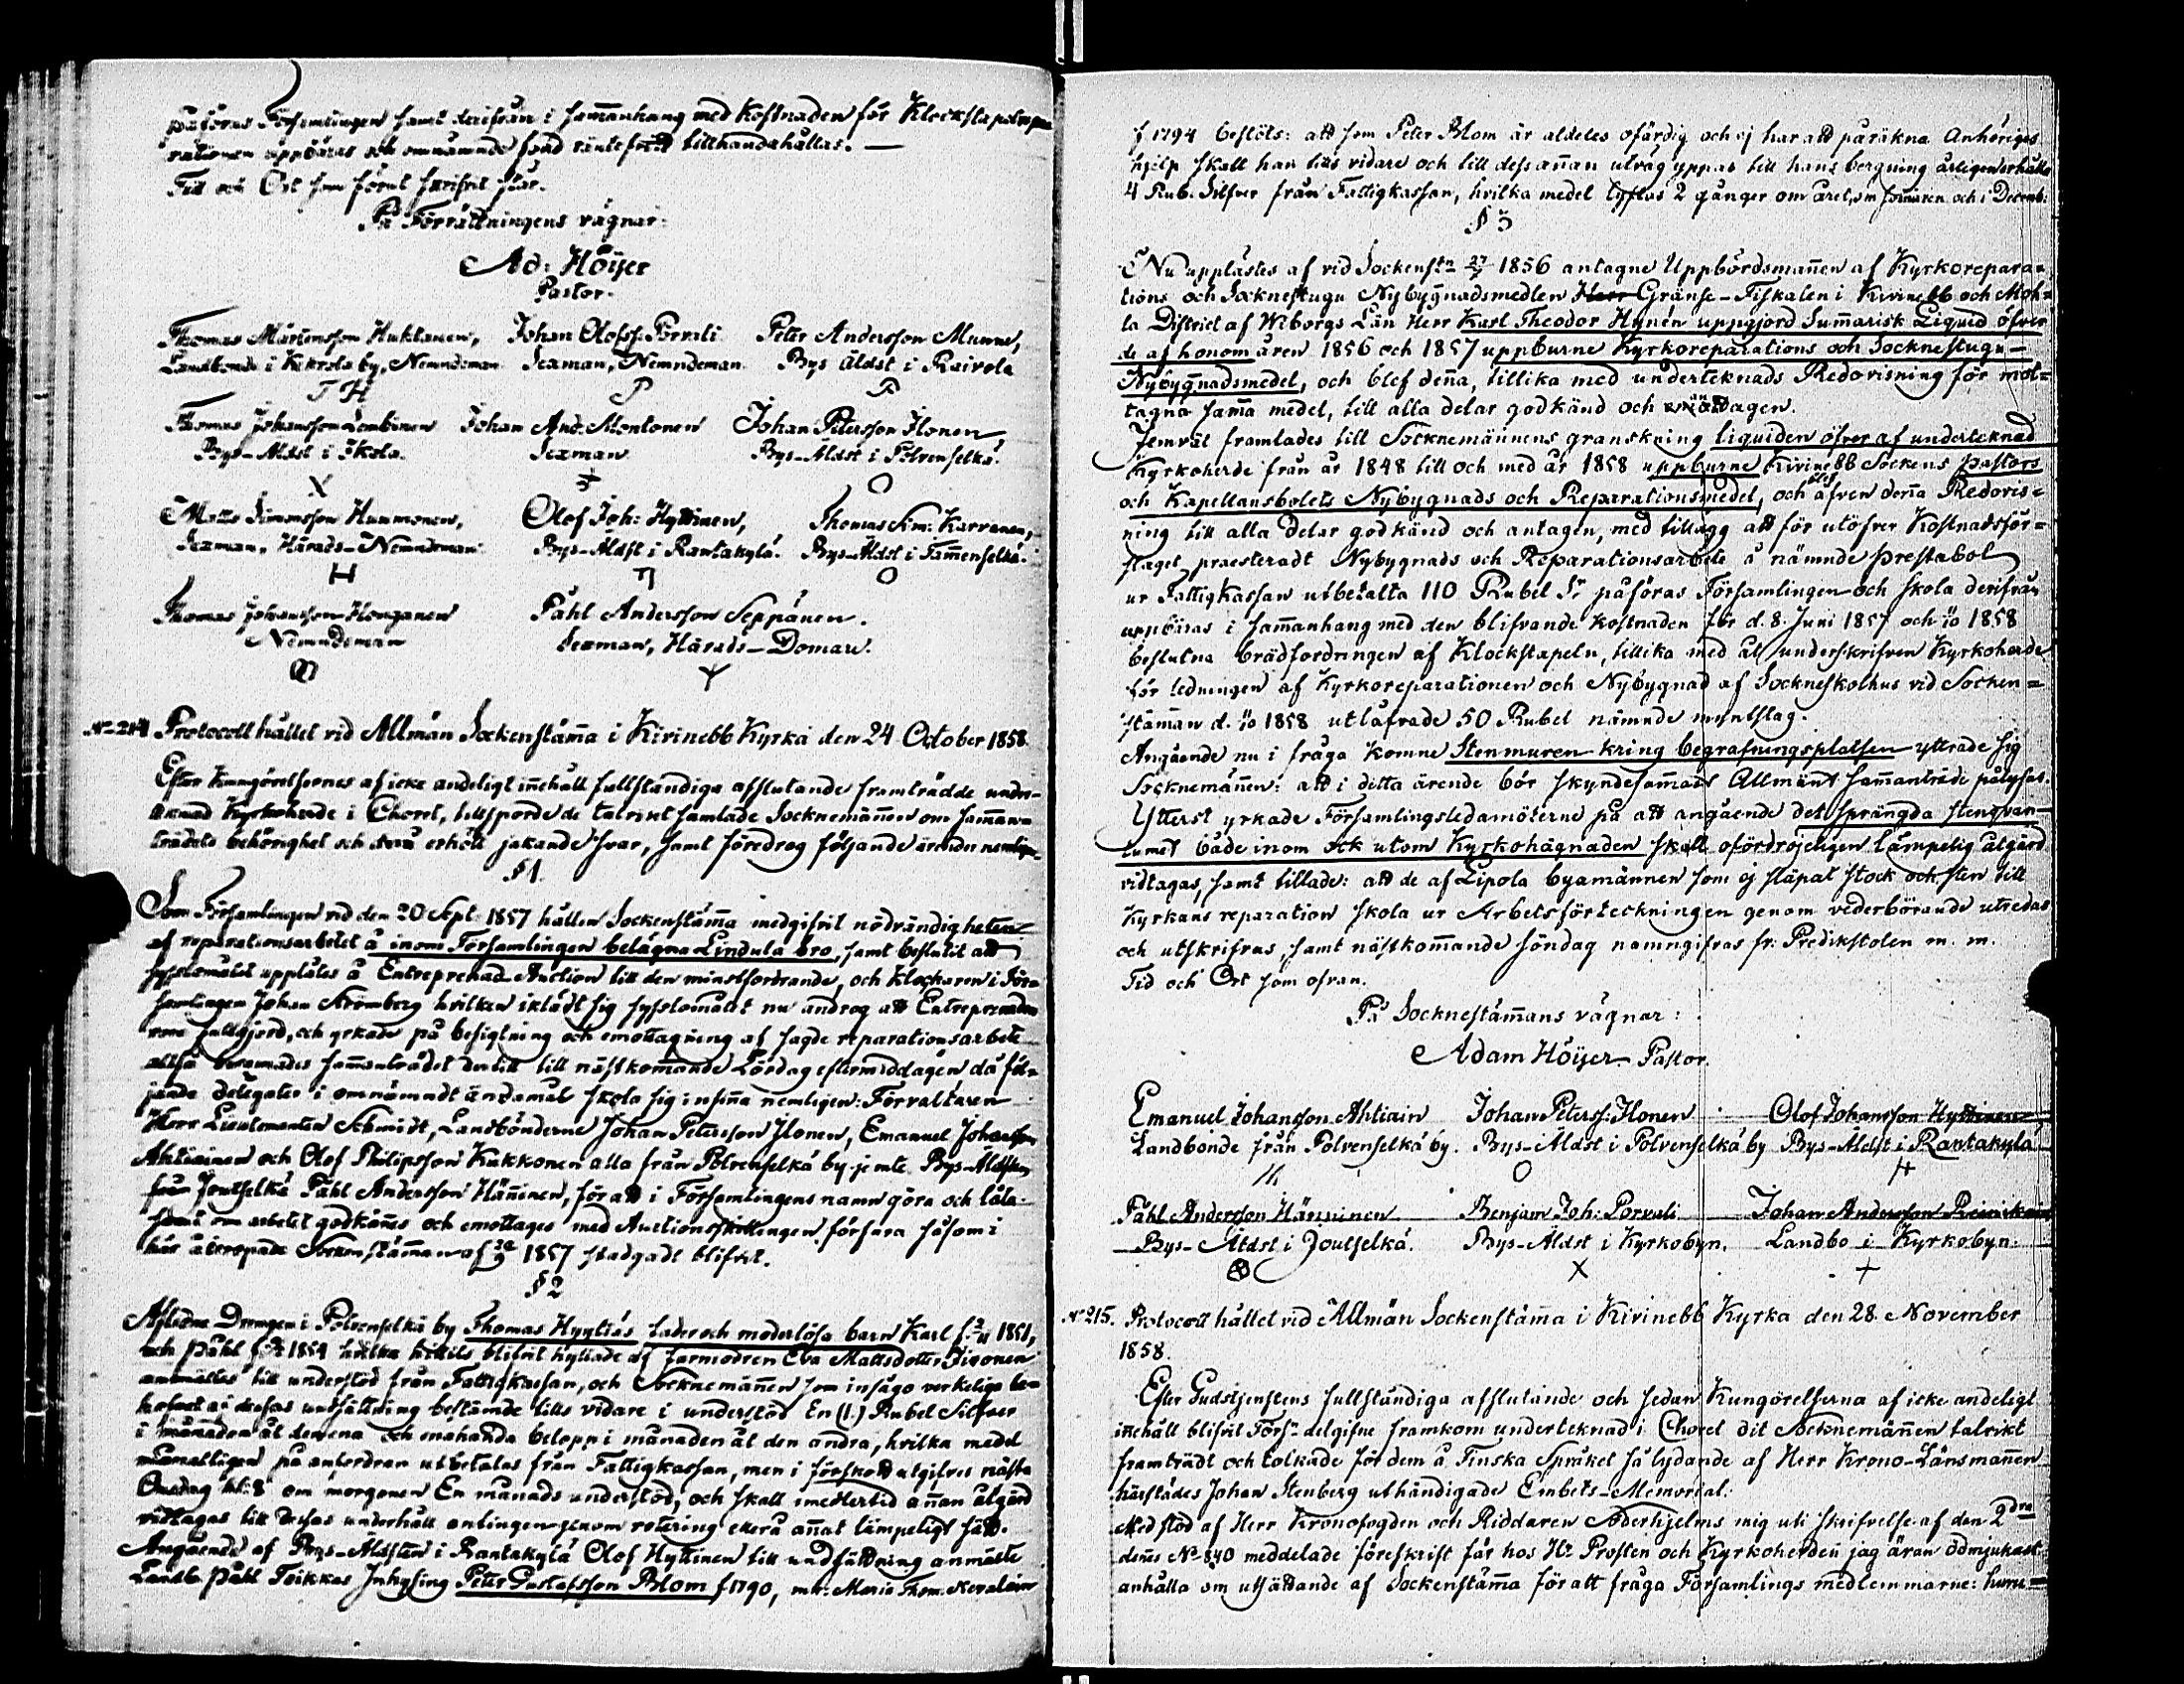 påföras Församlingen samt derifrån i sammanhang med Kostnaden för Klockstapelrepa
rationen uppbäras och omnämnde fond räntefritt tillhandahållas. —
Tid och Ort som förut skrifvit står.
På Förrättningens vägnar:
Ad: Höijer
Pastor.
Thomas Mårtensson Huktanen, Johan Olofss: Porvali Peter Andersson Munne,
Landbonde i Kekrola by, Nemndeman Sexman, Nemndeman. Bys Äldst i Raivola
TH P R
Thomas Johansson Lembinen Johan And: Montonen Johan Petersson Ilonen
Bys-Äldst i Ikola. Sexman Bys-Äldst i Polvenselkä.
X O
Matts Simonsson Hummonen, Olof Joh: Hyttinen, Thomas Sim: Karvanen,
Sexman, Härads-Nemndeman Bys-Äldst i Rantakylä. Bys-Äldst i Tammenselkä.
H O
Thomas Johansson Påhl Andersson Seppänen.
Nemndeman Sexman, Härads-Domare.
No 214 Protocoll hållet vid Allmän Sockenstäm̄a i Kivinebb Kyrka den 24 October 1858.
Efter Kungörelsernes af icke andeligt in̄ehåll fullständiga afslutande framträdde under-
teknad Kyrkoherde i Choret, tillsporde de talrikt samlade Socknemän̄en om sam̄an-
trädets behörighet och erhöll jakande svar, samt föredrog följande ärenden nemligen.
§ 1.
Som Församlingen vid den 20 Sept: 1857 hållen Sockenstäm̄a medgifvit nödvändigheten
af reparationsarbetet å inom Församlingen belägna Lindula bro, samt beslutit att
sysslomålet upplåtes å Entreprenad-Auction till den minstfordrande, och Klockaren i För-
samlingen Johan Strömberg hvilken iklädt sig sysslomålet nu androg att Entreprenaden
vore fullgjord, och yrkade på besigtning och emottagning af sagde reparationsarbete
alltså beramades sam̄anträdet dertill till nästkom̄ande Lördag eftermiddagen då föl-
jande delegater i omnämndt ändamål skola sig infin̄a nemligen: Förvaltaren
Herr Lieutenanten Schmidt, Landbönderne Johan Petersson Ilonen, Emanuel Johansson
Ahtiainen och Olof Philipsson Kukkonen alla från Polvenselkä by jemte Bys-Äldsten
från Joutselkä Påhl Andersson Hän̄inen, för att i Församlingens namn göra och låta
samt om arbetet godkän̄es och emottages med Auctionsskillingen förfara såsom i
här åberopade Sockenstäm̄an af 20/9 1857 stadgadt blifvit.
§ 2
Aflidne Drengen i Polvenselkä by Thomas Hyytiäs fader och moderlösa barn Karl f. 2/11 1851,
och Påhl f. 1854 hvilka hittils blifvit hyllade af farmodren Eva Mattsdotter Jironen
anmältes till understöd från Fattigkassan, och Socknemän̄en som insågo verkeliga be-
hofvet af dessas undsättning bestämde tills vidare i understöd En (1.) Rubel Silfver
i månaden åt den ena och enahanda belopp i månaden åt den andra, hvilka medel
månatligen på anfordran utbetalas från Fattigkassan, men i förskott utgifves nästa
Onsdag kl: 8 om morgonen En månads understöd, och skall imedlertid an̄an åtgärd
vidtagas till dessas underhåll antingen genom rotering eller å an̄at lämpeligt sätt.
Angående af Bys-Äldsten i Rantakylä Olof Hyttinen till undsättning anmälte
Landb: Påhl Toikkas Inhysing Peter Gustafsson Blom f 1790, m. Maria Thom:
f 1794 beslöts: att som Peter Blom är aldeles ofärdig och ej har att påräkna Anhöriges
hjelp skall han tills vidare och till dess an̄an utväg yppas till hans bergning årligen erhålla
4 Rub. Silfver från Fattigkassan, hvilka medel lyftas 2 gånger om året, om sommaren och i Decemb:
§ 3
Nu upplästes af vid Sockenstn 27/4 1856 antagne Uppbördsman̄en af Kyrkorepara-
tions och Socknestugu Nybygnadsmedlen Herr Gränse-Fiskalen i Kivinebb och Moh-
la District af Wiborgs Län Herr Karl Theodor Hynén uppgjord Sum̄arisk Liquid öfver
de af honom åren 1856 och 1857 uppburne Kyrkoreparations och Socknestugu-
Nybygnadsmedel, och blef den̄a, tillika med underteknads Redovisning för mot-
tagna sam̄a medel, till alla delar godkänd och antagen.
Jemväl framlades till Socknemännens granskning liquiden öfver af underteknad
Kyrkoherde från år 1848 till och med år 1858 uppburne Kivinebb Sockens Pastors
och Kapellansbolets Nybygnads och Reparationsmedel, och blef äfven den̄a Redovis-
ning till alla delar godkänd och antagen, med tillägg att för utöfver Kostnadsför-
slaget praesteradt Nybygnads och Reparationsarbete å nämnde Prestabol
ur Fattigkassan utbetalta 110 Rubel Sr påföras Församlingen och skola derifrån
uppbäras i sam̄anhang med den blifvande kostnaden för d. 8. Juni 1857 och 1858
beslutna brädfordringen af Klockstapeln, tillika med åt underskrifven Kyrkoherde
för ledningen af Kyrkoreparationen och Nybygnad af Socknestolhus vid Socken-
stäm̄an d. 1858 utlåfvade 50 Rubel nämnde myntslag.
Angående nu i fråga komne Stenmuren kring begrafningsplatsen yttrade sig
Socknemän̄en: att i detta ärende bör skyndesam̄ast Allmänt Sam̄anträde pålysas.
Ytterst yrkade Församlingsledamöterne på att angående det sprängda stenqvan-
tumet både inom och utom Kyrkohägnaden skall ofördröjeligen lämpelig åtgärd
vidtagas, samt tillade: att de af Lipola byamännen som ej släpat stock och sten till
Kyrkans reparation skola ur Arbetsförteckningen genom vederbörande utredas
och utskrifvas, samt nästkom̄ande söndag namngifvas fr: Predikstolen m. m.
Tid och Ort som ofvan.
På Socknestäm̄ans vägnar:
Adam Höijer Pastor.
Emanuel Johansson Ahtiain Johan Peterss: Ilonen Olof Johansson Hyttinen
Landbonde från Polvenselkä by. Bys-Äldst i Polvenselkä by Bys-Äldst i Rantakylä
O
Påhl Andersson Hänninen Benjam Joh: Porvali Johan Andersson
Bys-Äldst i Joutselkä. Bys-Äldst i Kyrkobyn. Landbo i Kyrkobyn.
X +
No 215. Protocoll hållet vid Allmän Sockenstäm̄a i Kivinebb Kyrka den 28 November
1858.
Efter Gudstjenstens fullständiga afslutande och sedan Kungörelserna af icke andeligt
in̄ehåll blifvit Förs:n delgifne framkom underteknad i Choret dit Socknemän̄en talrikt
framträdt och tolkade för dem å Finska Språket så lydande af Herr Krono-Länsman̄en
härstädes Johan Stenberg uthändigade Embets-Memorial:
Med stöd af Herr Kronofogden och Riddaren Söderhjelms mig uti skrifvelse af den 2dra
den̄es No 840 meddelade föreskrift får hos Hr Prosten och Kyrkoherden jag äran ödmjukast
anhålla om utsättande af Sockenstäm̄a för att fråga Församlings medlemmarne: huru-